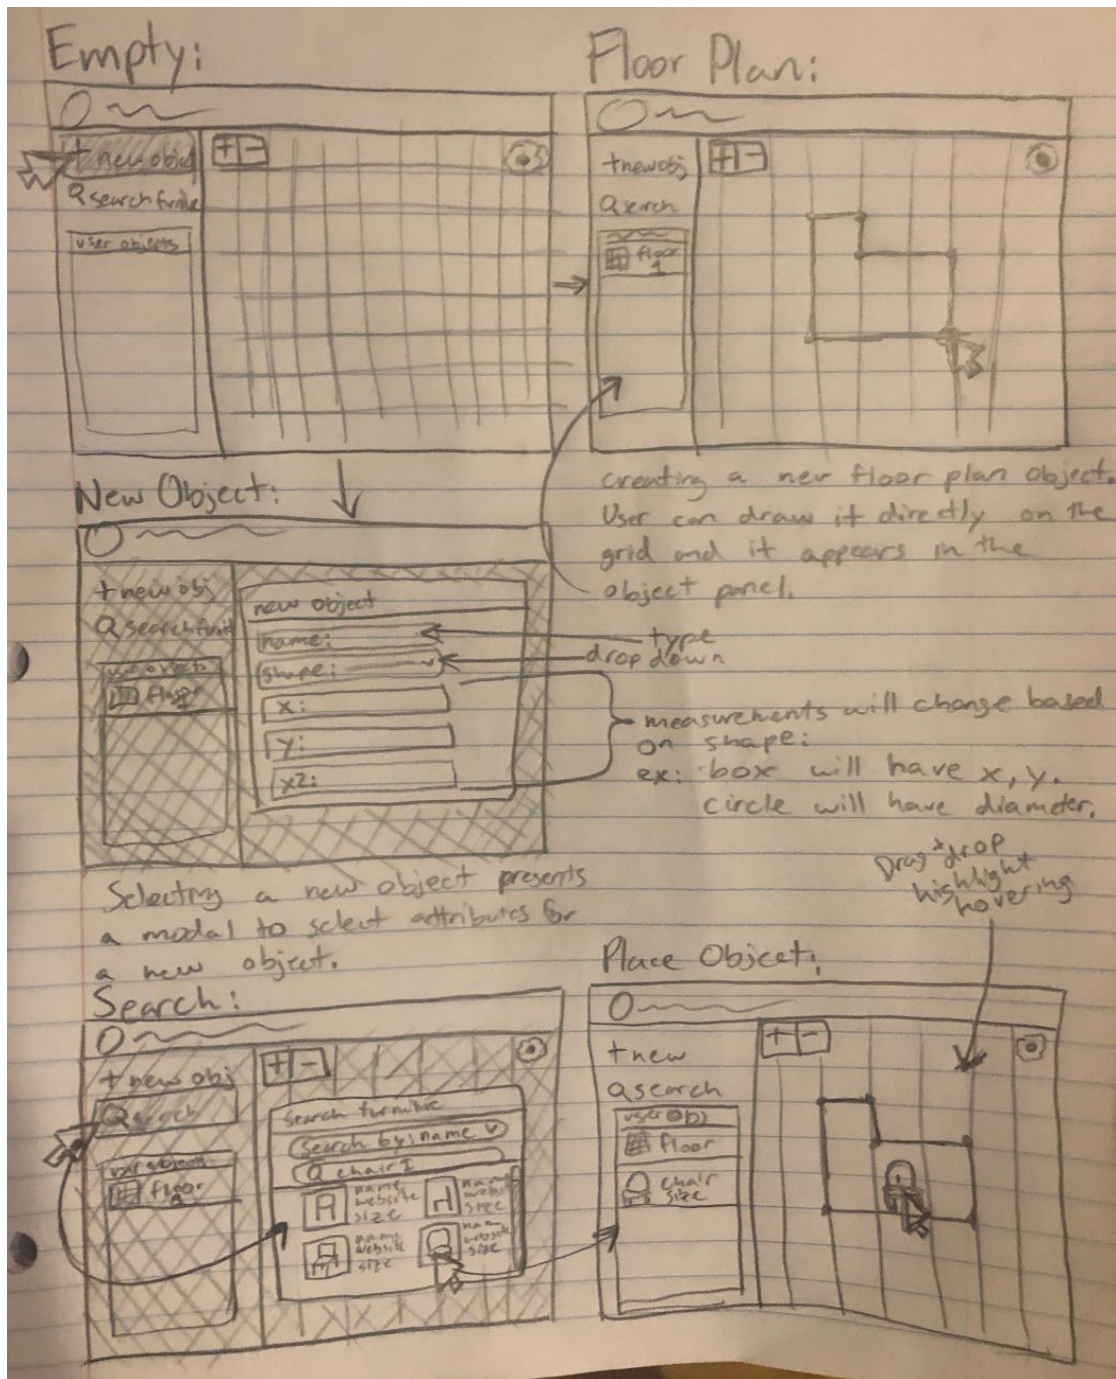 Empty:
+ new object
+ -
Q search furniture
user objects
Floor Plan:
+ new obj
+ -
Q search
floor
1
creating a new floor plan object.
User can draw it directly on the
grid and it appears in the
object panel.
New Object:
+ new obj
Q search furni
user objects
floor
new object
name:
shape:
x:
y:
x2:
type
drop down
measurements will change based
on shape:
ex: box will have x, y.
circle will have diameter.
Selecting a new object presents
a modal to select attributes for
a new object.
Drag + drop
highlight
hovering
Search:
+ new obj
+ -
Q search
user objects
floor
search furniture
Search by: name v
Q chair I
name
website
size
name
website
size
name
website
size
name
website
size
Place Object:
+ new
+ -
Q search
user obj
floor
chair
size